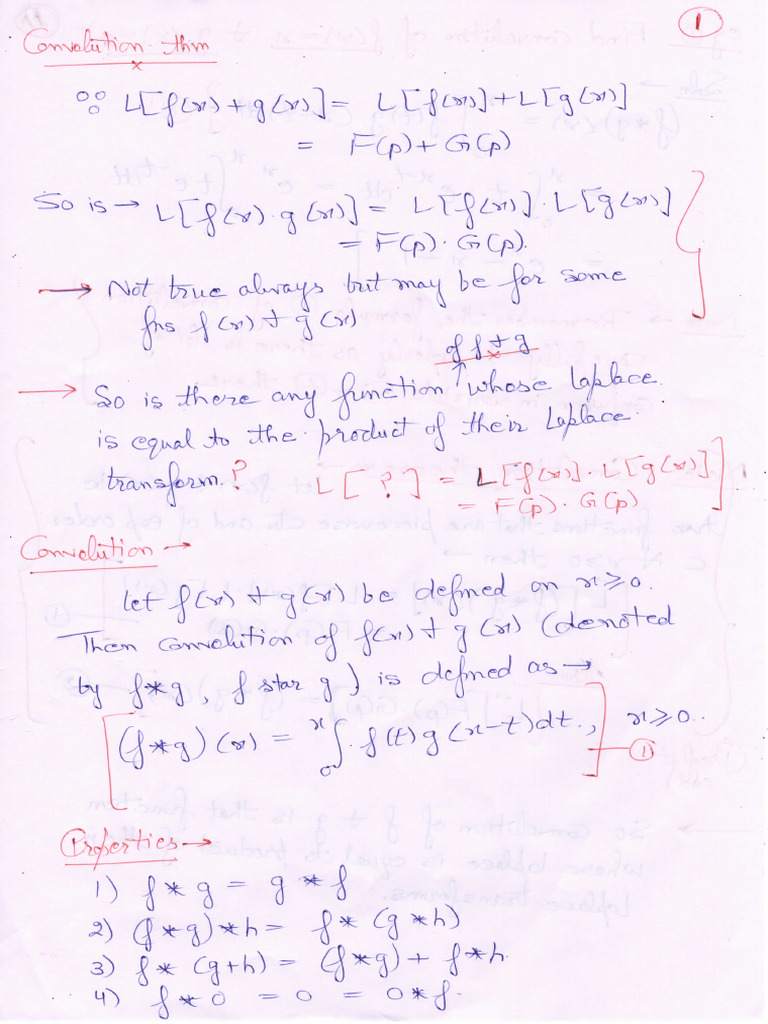 1
Convolution thm
∵ L[f(x)+g(x)] = L[f(x)]+L[g(x)]
= F(p)+G(p)
So is → L[f(x)·g(x)] = L[f(x)]·L[g(x)]
= F(p)·G(p).
→ Not true always but may be for some
fns f(x) & g(x)
of f & g
→ So is there any function ↑ whose Laplace
is equal to the product of their Laplace
transform.? L[ ? ] = L[f(x)]·L[g(x)]
= F(p)·G(p)
Convolution →
let f(x) & g(x) be defined on x≥0.
Then convolution of f(x) & g(x) (denoted
by f*g, f star g) is defined as →
(f*g)(x) = ∫₀ˣ f(t)g(x-t)dt., x≥0.. —①
Properties →
1) f*g = g*f
2) (f*g)*h = f*(g*h)
3) f*(g+h) = (f*g)+f*h.
4) f*0 = 0 = 0*f.